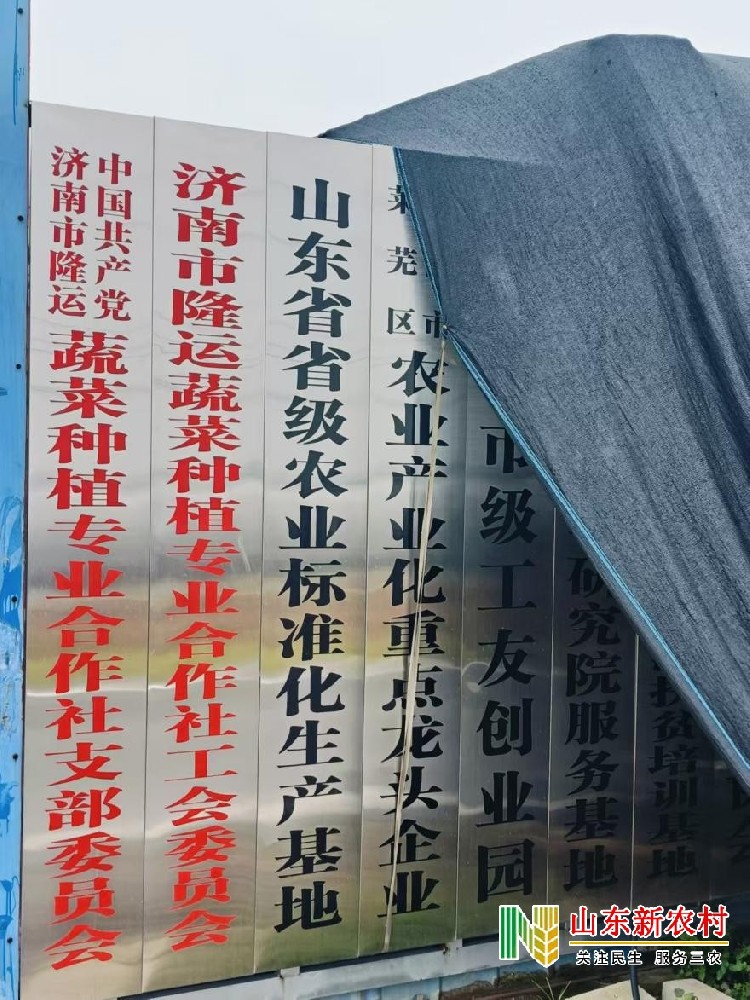 中国共产党
济南市隆运
蔬菜种植专业合作社支部委员会
济南市隆运蔬菜种植专业合作社工会委员会
山东省省级农业标准化生产基地
莱芜区
市
农业产业化重点龙头企业
市级工友创业园
研究院服务基地
扶贫培训基地
山东新农村
关注民生 服务三农